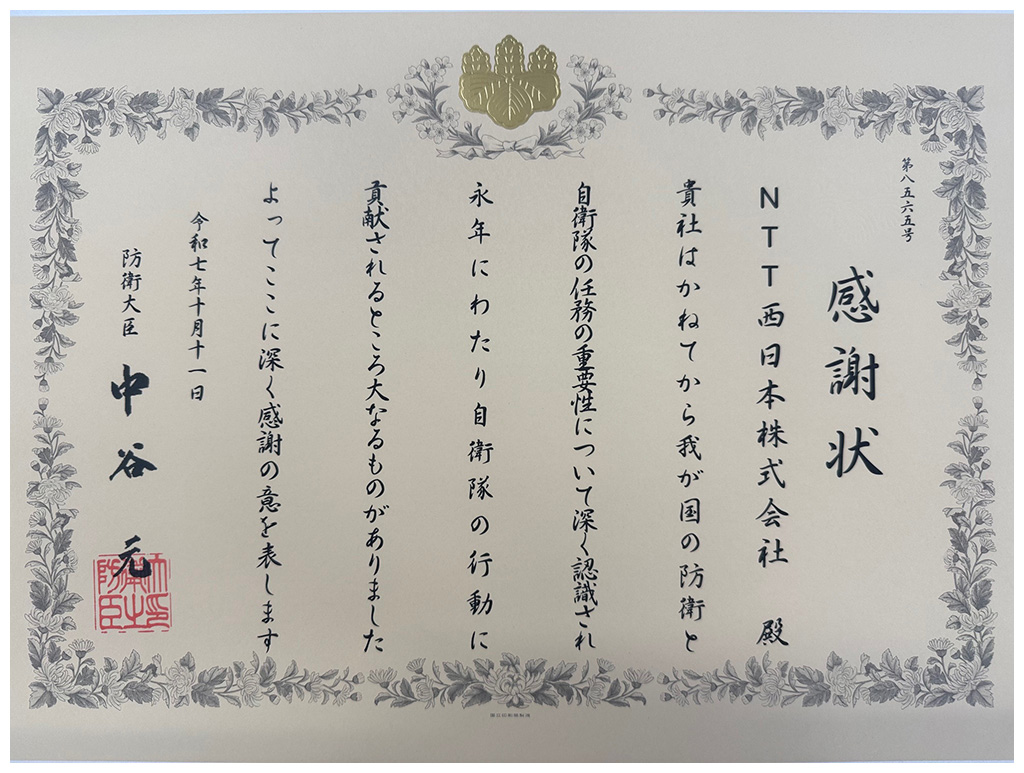 第八五六五号
感謝状
NTT西日本株式会社 殿
貴社はかねてから我が国の防衛と
自衛隊の任務の重要性について深く認識され
永年にわたり自衛隊の行動に
貢献されるところ大なるものがありました
よってここに深く感謝の意を表します
令和七年十月十一日
防衛大臣 中谷 元
防衛大臣之印